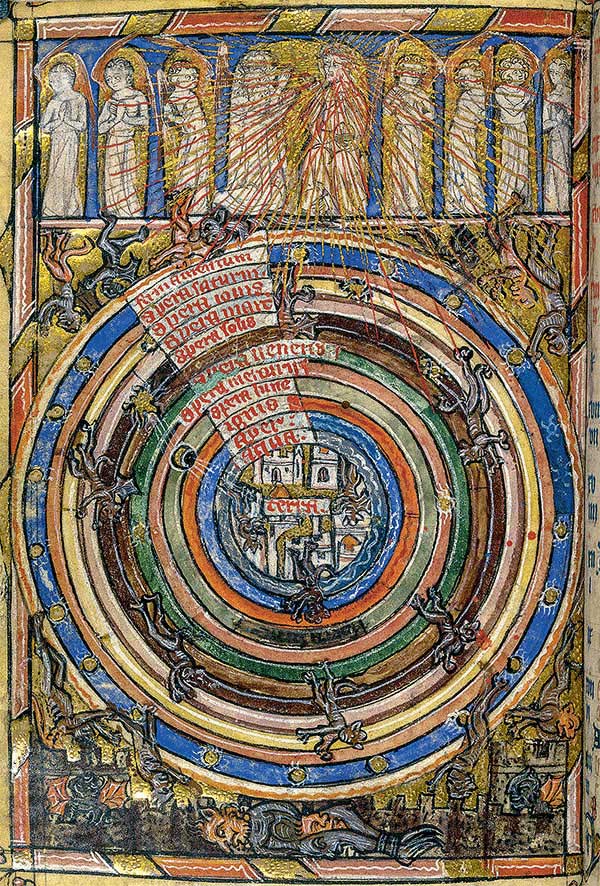 firmamentum
spera saturni
spera iouis
spera mart
spera solis
spera ueneris
spera mercurij
spera lune
ignis
aer.
aqua.
terra.